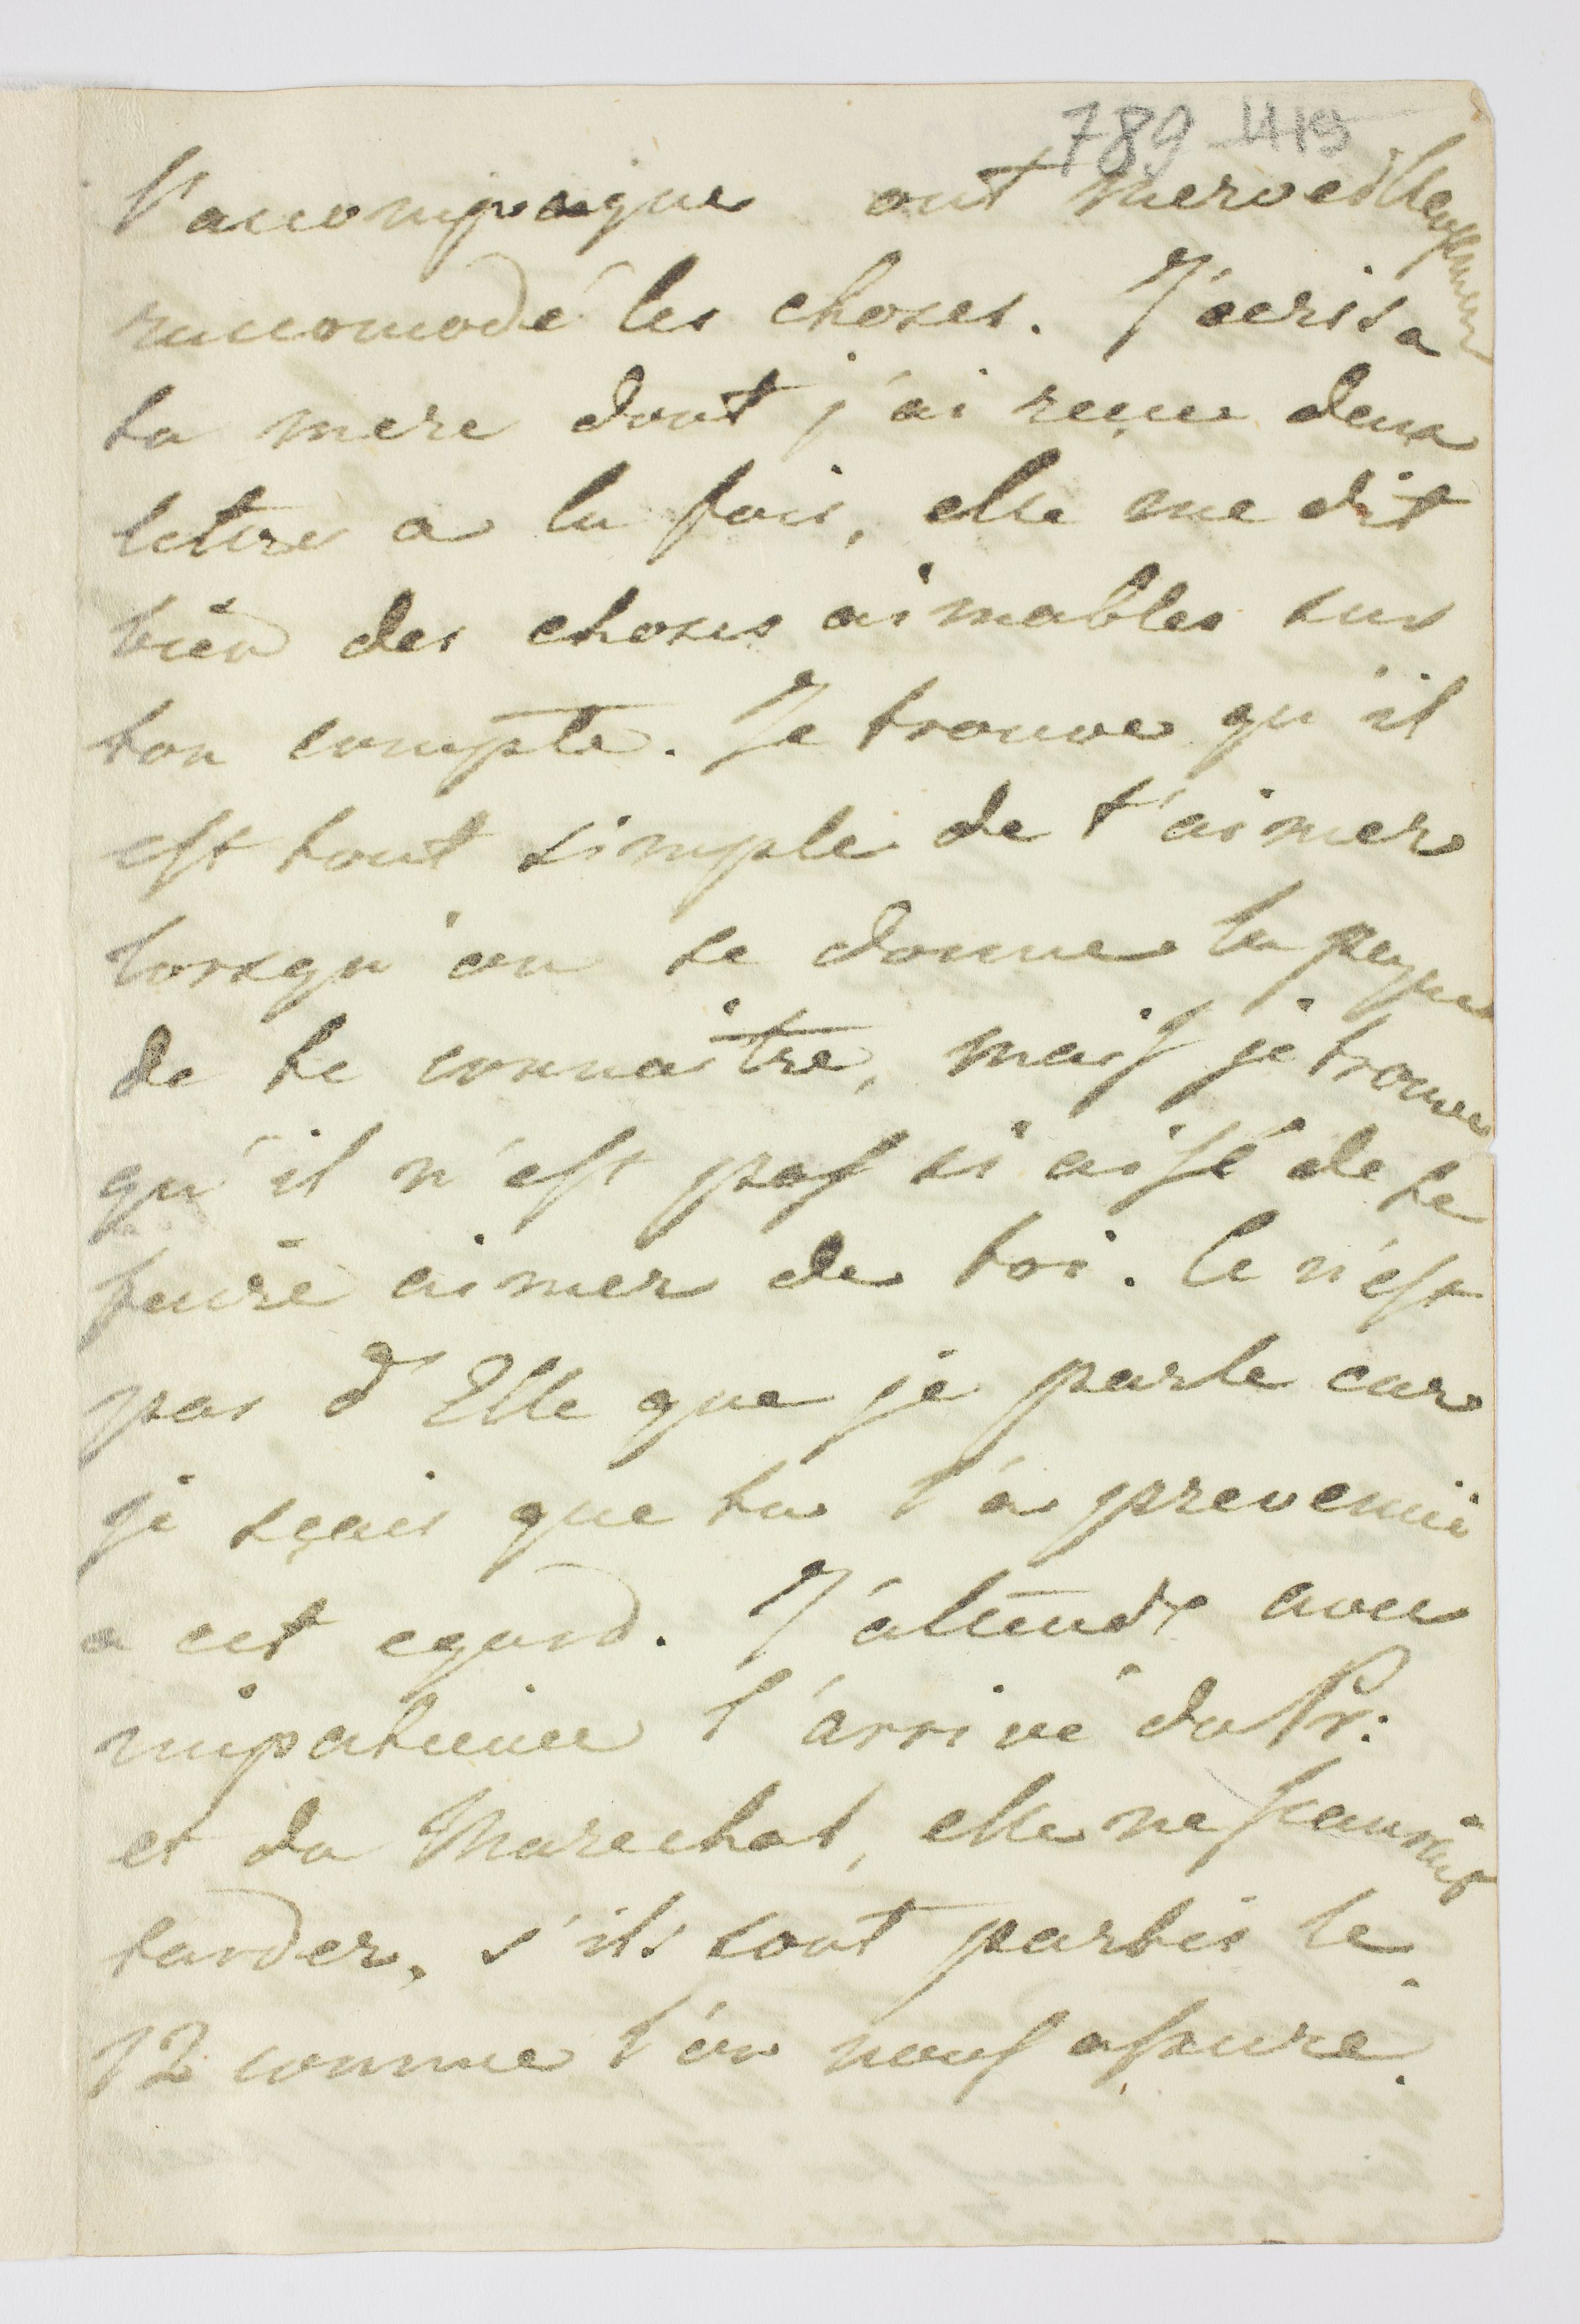 789 419
l'accompagne ont merveilleusement
raccomodé les choses. J'écris a
ta mere dont j'ai reçue deux
lettre a la fois, elle me dit
bien des choses aimables sur
ton compte. Je trouve qu'il
est tout simple de t'aimer
lorsqu'on se donne la peyne
de te connaitre, mais je trouve
qu'il n'est pas si aisé de se
faire aimer de toi. Ce n'est
pas d'Elle que je parle car
je sçais que tu l'a prevenue
a cet egard. J'attends avec
impatience l'arrivé du Pr:
et du Marechal, elle ne sauroit
tarder, s'ils sont partis le
12 comme l'on nous assure.